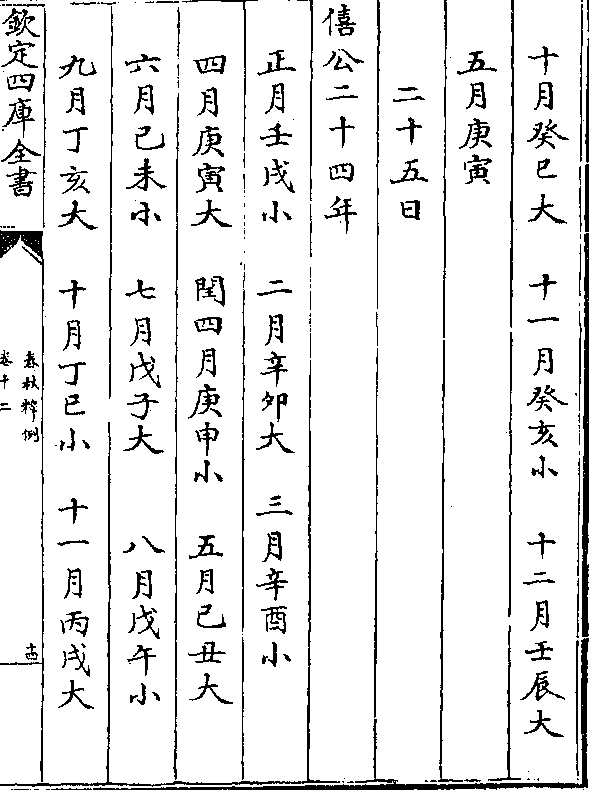 十月癸巳大　十一月癸亥小　十二月壬辰大
五月庚寅
二十五日
僖公二十四年
正月壬戌小　二月辛卯大　三月辛酉小
四月庚寅大　閏四月庚申小　五月己丑大
六月己未小　七月戊子大　八月戊午小
九月丁亥大　十月丁巳小　十一月丙戌大
欽定四庫全書
春秋釋例
卷十二
十四